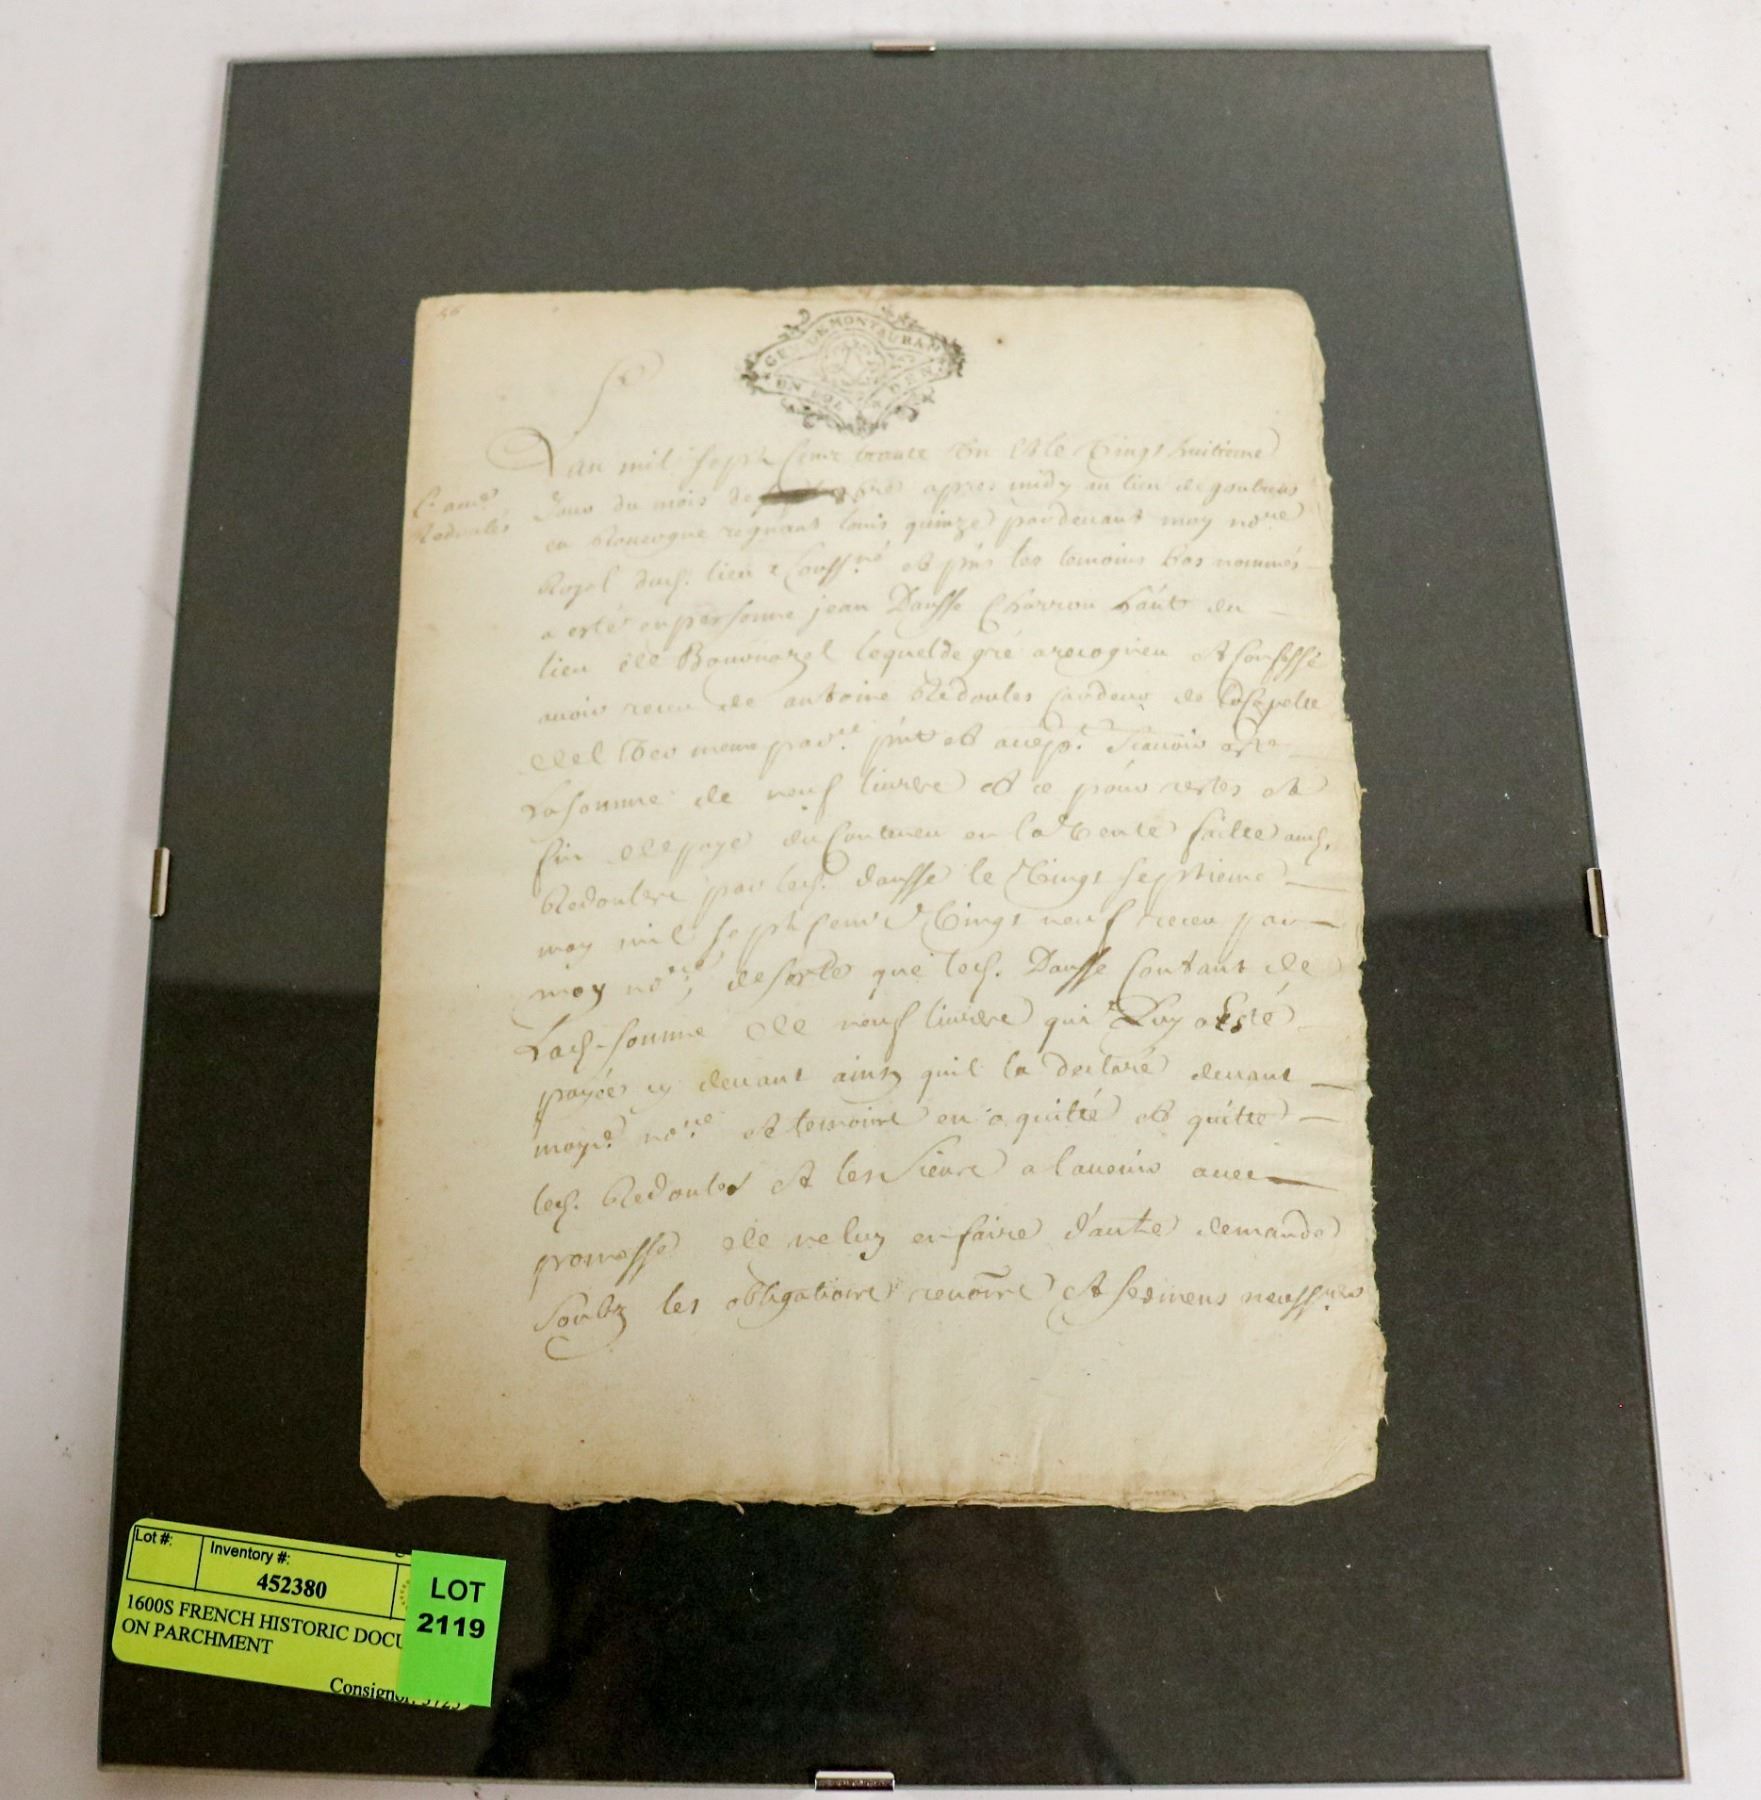 GEN. DE MONTAUBAN
Lan mil sept cens trante un et le vingt huitieme
jour du mois de apres midy au lieu de goutrens
en Rouergue regnant Louis quinze pardevant moy no.re
Royal dud. lieu souss.né et pñs les temoins bas nommés
a esté en personne jean Dausse Charron hánt du
lieu de Bournazel lequel de gré a recogneu et confessé
avoir receu de antoine Redoules cardeur de
par.se pñt et accep.t scavoir est
La somme de neuf livres et ce pour restes et
fin de paye du conteneu en la vente faitte aud.
Redoules par led. dausse le vingt septieme
may mil sept cens vingt neuf receu par
moy no.re de sorte que led. Dausse contant de
Lad. somme de neuf livres qui Luy a Esté
payée cy devant ainsy quil la declaré devant
moyd. no.re et temoins en a quitté et quitte
led. Redoules et les siens a lavenir avec
promesse de ne luy en faire d'autre demande
soubz les obligations renõns et sermens necess.res
Redoules
Lot #:
Inventory #:
452380
1600S FRENCH HISTORIC DOCU
ON PARCHMENT
Consignor:
LOT
2119